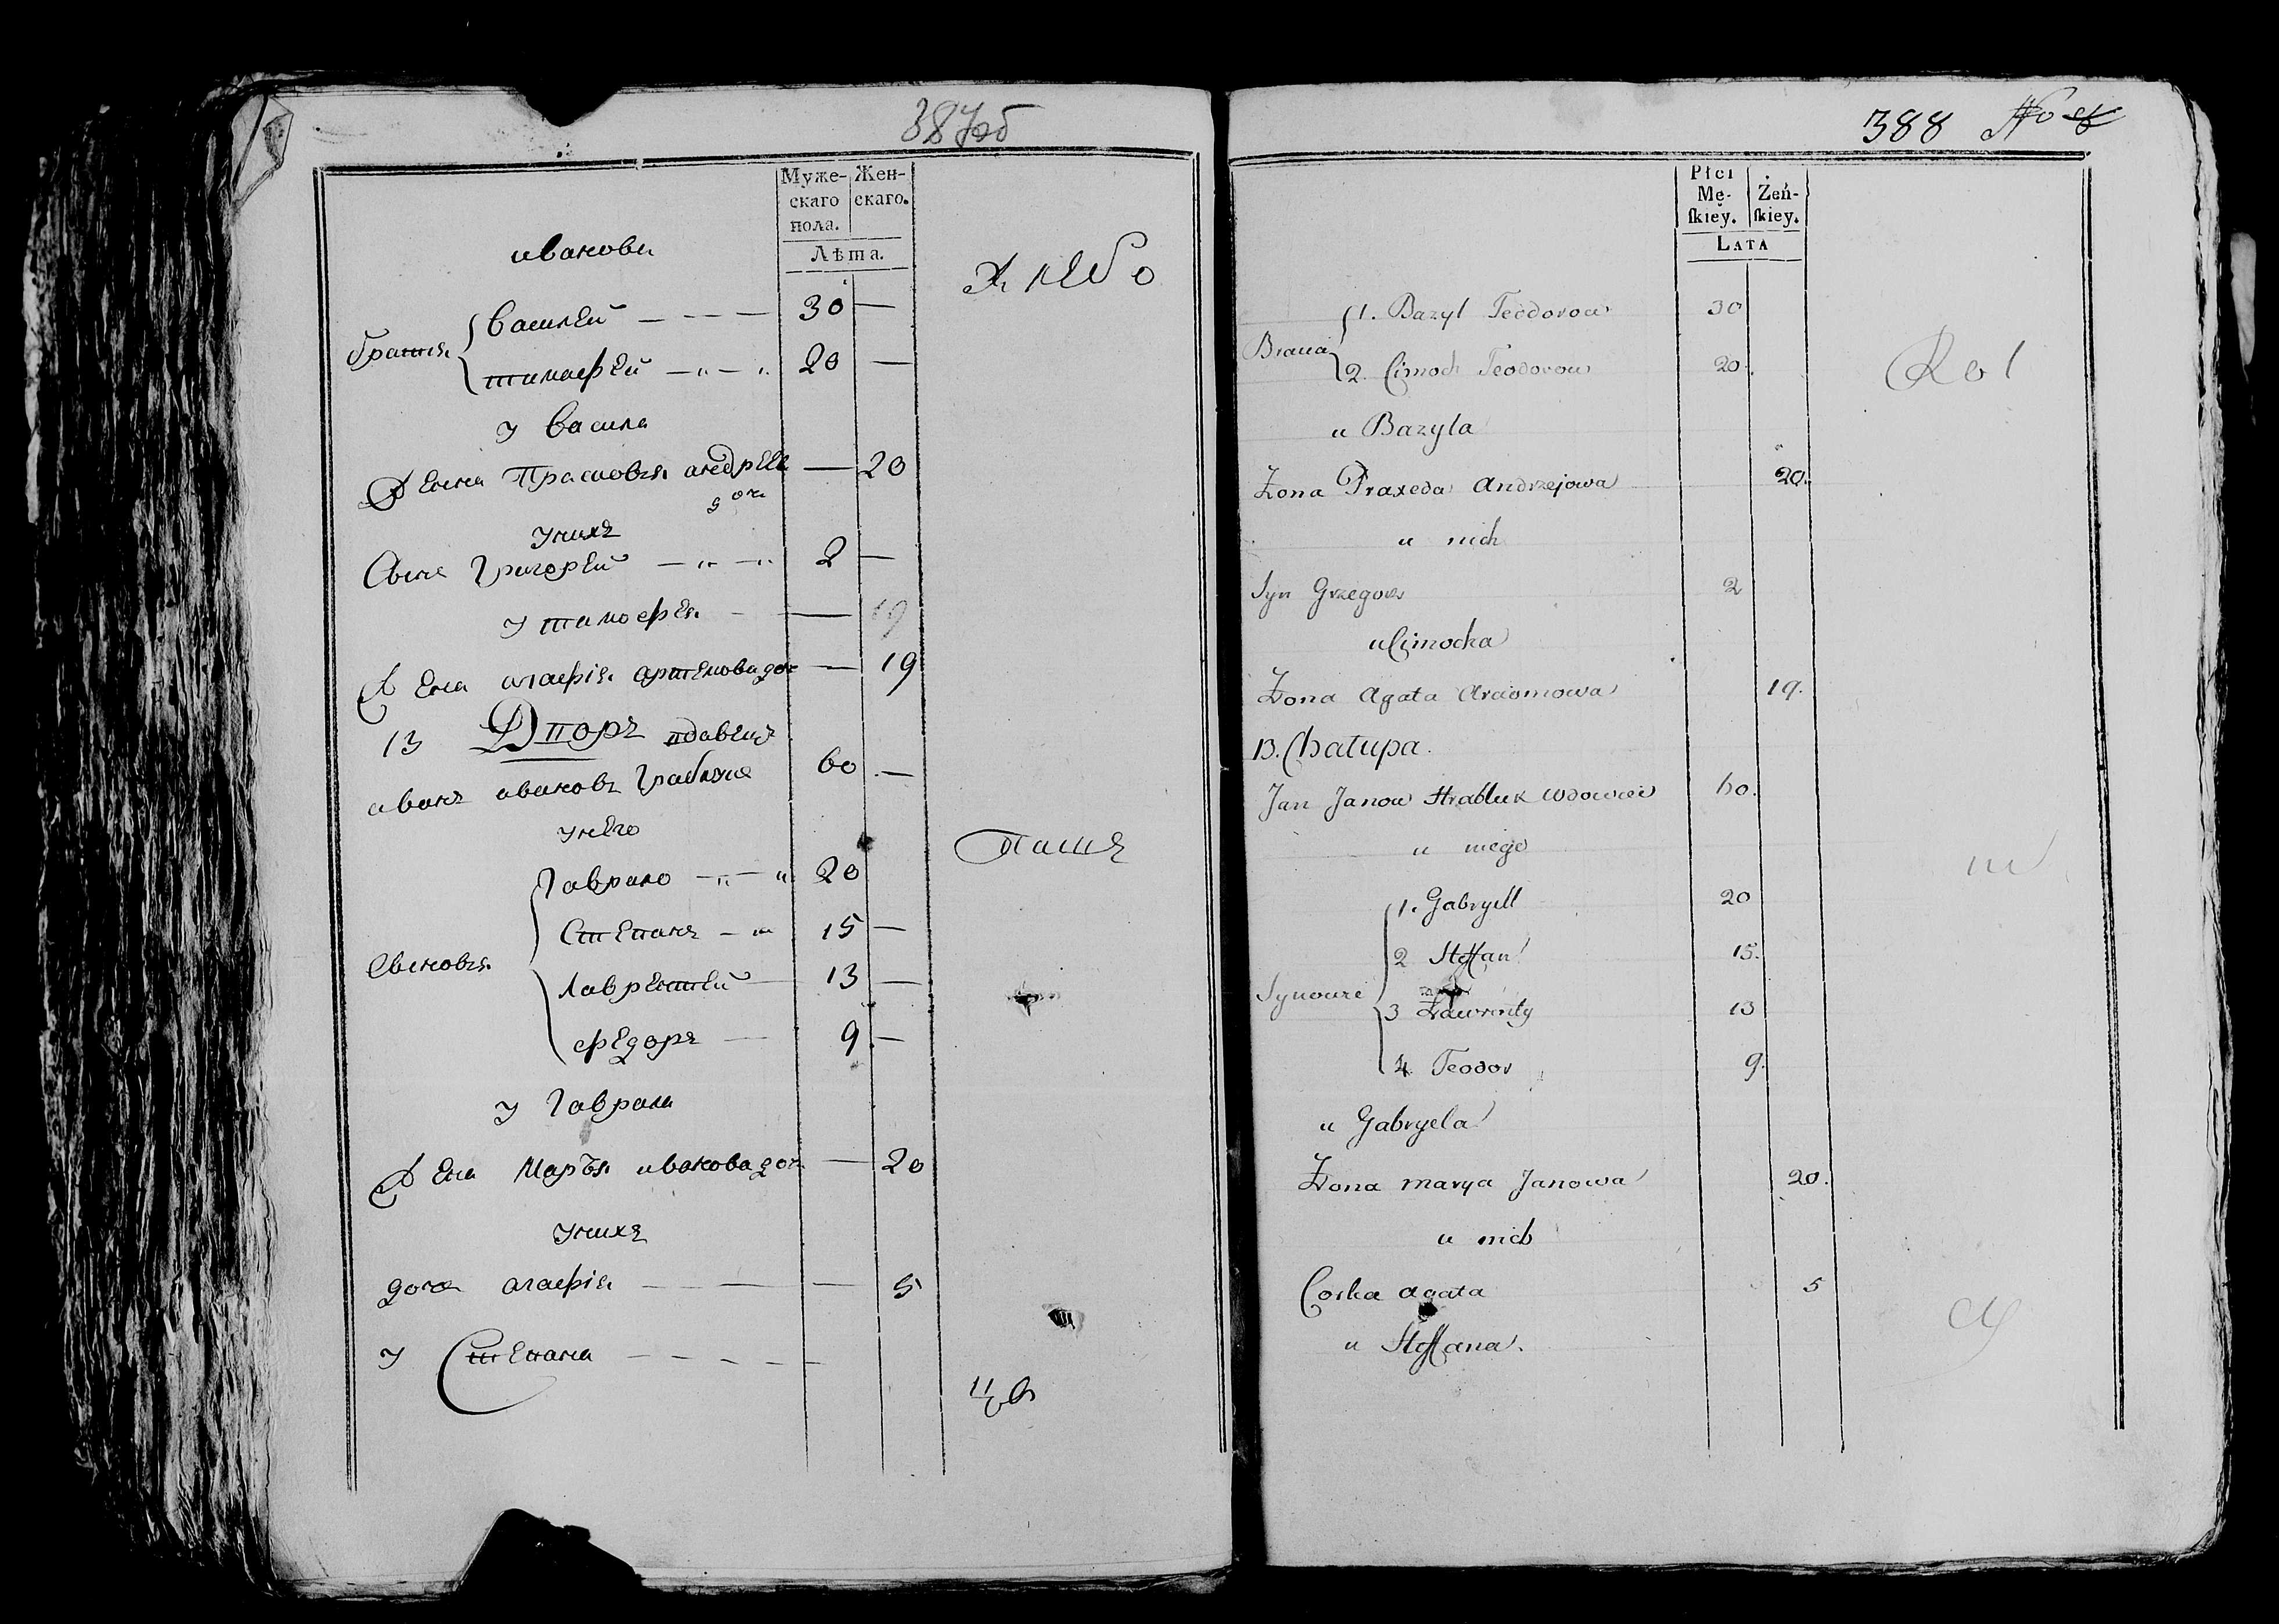 387об
Муже-
скаго
пола.
Жен-
скаго.
Лѣта.
ивановы
Хлебо
братья
Василей 30
тимофей 20
у васила
Жена Прасковья андреева 20
доч
у нихъ
Сынъ Григорей 2
у тимофея 19
Жена агафія артемова доч 19
13 Дворъ вдовецъ
иванъ ивановъ Граблукъ 60
у него
Пашъ
Гаврило 20
Степанъ 15
Сыновья
Лаврентей 13
федоръ 9
у Гаврила
Жена Марья иванова доч 20
у нихъ
дочь агафія 5
у Степана
цы
388
Płci
Mę-
ſkiey.
Żeń-
ſkiey.
Lata
1. Bazyl Teodorow 30
Bracia
2 Cimoch Teodorow 20
Rol
u Bazyla
Żona Praxeda Andrzejowa 20.
u nich
Syn Grzegorz 2
u Cimocha
Żona Agata Arciomowa 19.
13. Chałupa.
Jan Janow Hrabluk wdowiec 60.
u niego
ni
1. Gabryell 20
2 Steffan 15.
Synowie
3 Ławrenty 13
4 Teodor 9.
u Gabryela
Żona Marya Janowa 20.
u nich
Corka Agata 5
cy
u Steffana.